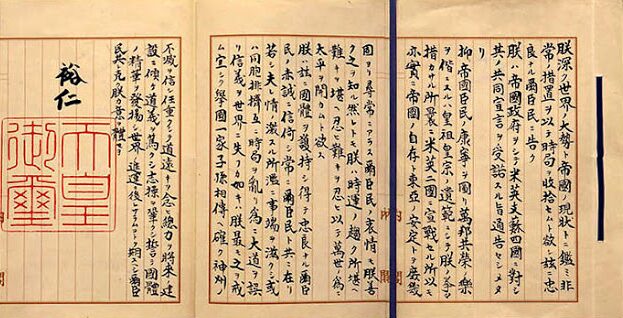 朕深ク世界ノ大勢ト帝國ノ現狀トニ鑑ミ非
常ノ措置ヲ以テ時局ヲ收拾セムト欲シ茲ニ忠
良ナル爾臣民ニ告ク
朕ハ帝國政府ヲシテ米英支蘇四國ニ對シ
其ノ共同宣言ヲ受諾スル旨通告セシメタ
リ
抑〻帝國臣民ノ康寧ヲ圖リ萬邦共榮ノ樂
ヲ偕ニスルハ皇祖皇宗ノ遺範ニシテ朕ノ拳〻
措カサル所曩ニ米英二國ニ宣戰セル所以モ
亦實ニ帝國ノ自存ト東亞ノ安定トヲ庶幾
内閣
固ヨリ尋常ニアラス爾臣民ノ衷情モ朕善
ク之ヲ知ル然レトモ朕ハ時運ノ趨ク所堪ヘ
難キヲ堪ヘ忍ヒ難キヲ忍ヒ以テ萬世ノ爲ニ
太平ヲ開カムト欲ス
朕ハ茲ニ國體ヲ護持シ得テ忠良ナル爾臣
民ノ赤誠ニ信倚シ常ニ爾臣民ト共ニ在リ
若シ夫レ情ノ激スル所濫ニ事端ヲ滋クシ或
ハ同胞排擠互ニ時局ヲ亂リ爲ニ大道ヲ誤
リ信義ヲ世界ニ失フカ如キハ朕最モ之ヲ戒
ム宜シク擧國一家子孫相傳ヘ確ク神州ノ
不滅ヲ信シ任重クシテ道遠キヲ念ヒ總力ヲ將來ノ建
設ニ傾ケ道義ヲ篤クシ志操ヲ鞏クシ誓テ國體
ノ精華ヲ發揚シ世界ノ進運ニ後レサラムコトヲ期スヘシ爾臣
民其レ克ク朕カ意ヲ體セヨ
裕仁
天皇
御璽